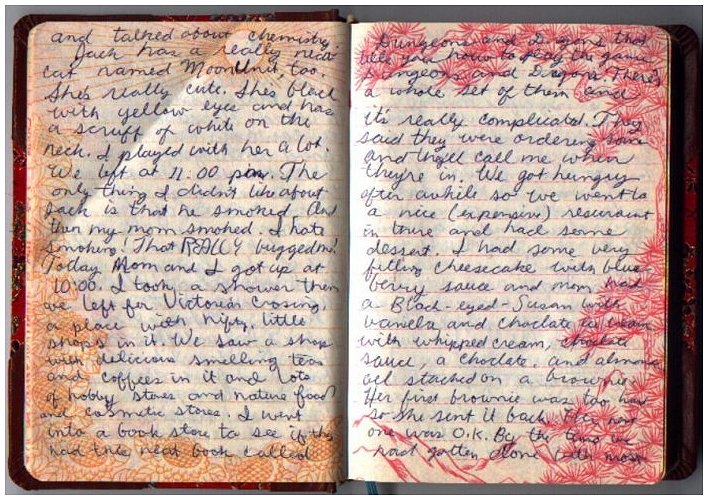 and talked about chemistry.
Jack has a really neat
cat named MoonUnit, too.
She's really cute. She's black
with yellow eyes and has
a scruff of white on the
neck. I played with her a lot.
We left at 11:00 pm. The
only thing I didn't like about
Jack is that he smoked. And
then my mom smoked. I hate
smoking! That REALLY bugged me!
Today Mom and I got up at
10:00. I took a shower then
we left for Victorian Crossing,
a place with nifty, little
shops in it. We saw a shop
with delicious smelling teas
and coffees in it and lots
of hobby stores and nature food
and cosmetic stores. I went
into a book store to see if they
had this neat book called
Dungeons and Dragons that
tells you how to play the game
Dungeons and Dragons. There's
a whole set of them and
it's really complicated. They
said they were ordering some
and they'll call me when
they're in. We got hungry
after awhile so we went to
a nice (expensive) resturaunt
in there and had some
dessert. I had some very
filling cheesecake with blue-
berry sauce and mom had
a Black-eyed-Susan with
vanella and choclate ice cream
with whipped cream, choclate
sauce, a choclate, and almonds
all stacked on a brownie.
Her first brownie was too hard
so she sent it back. The next
one was O.K. By the time we
had gotten done both mom